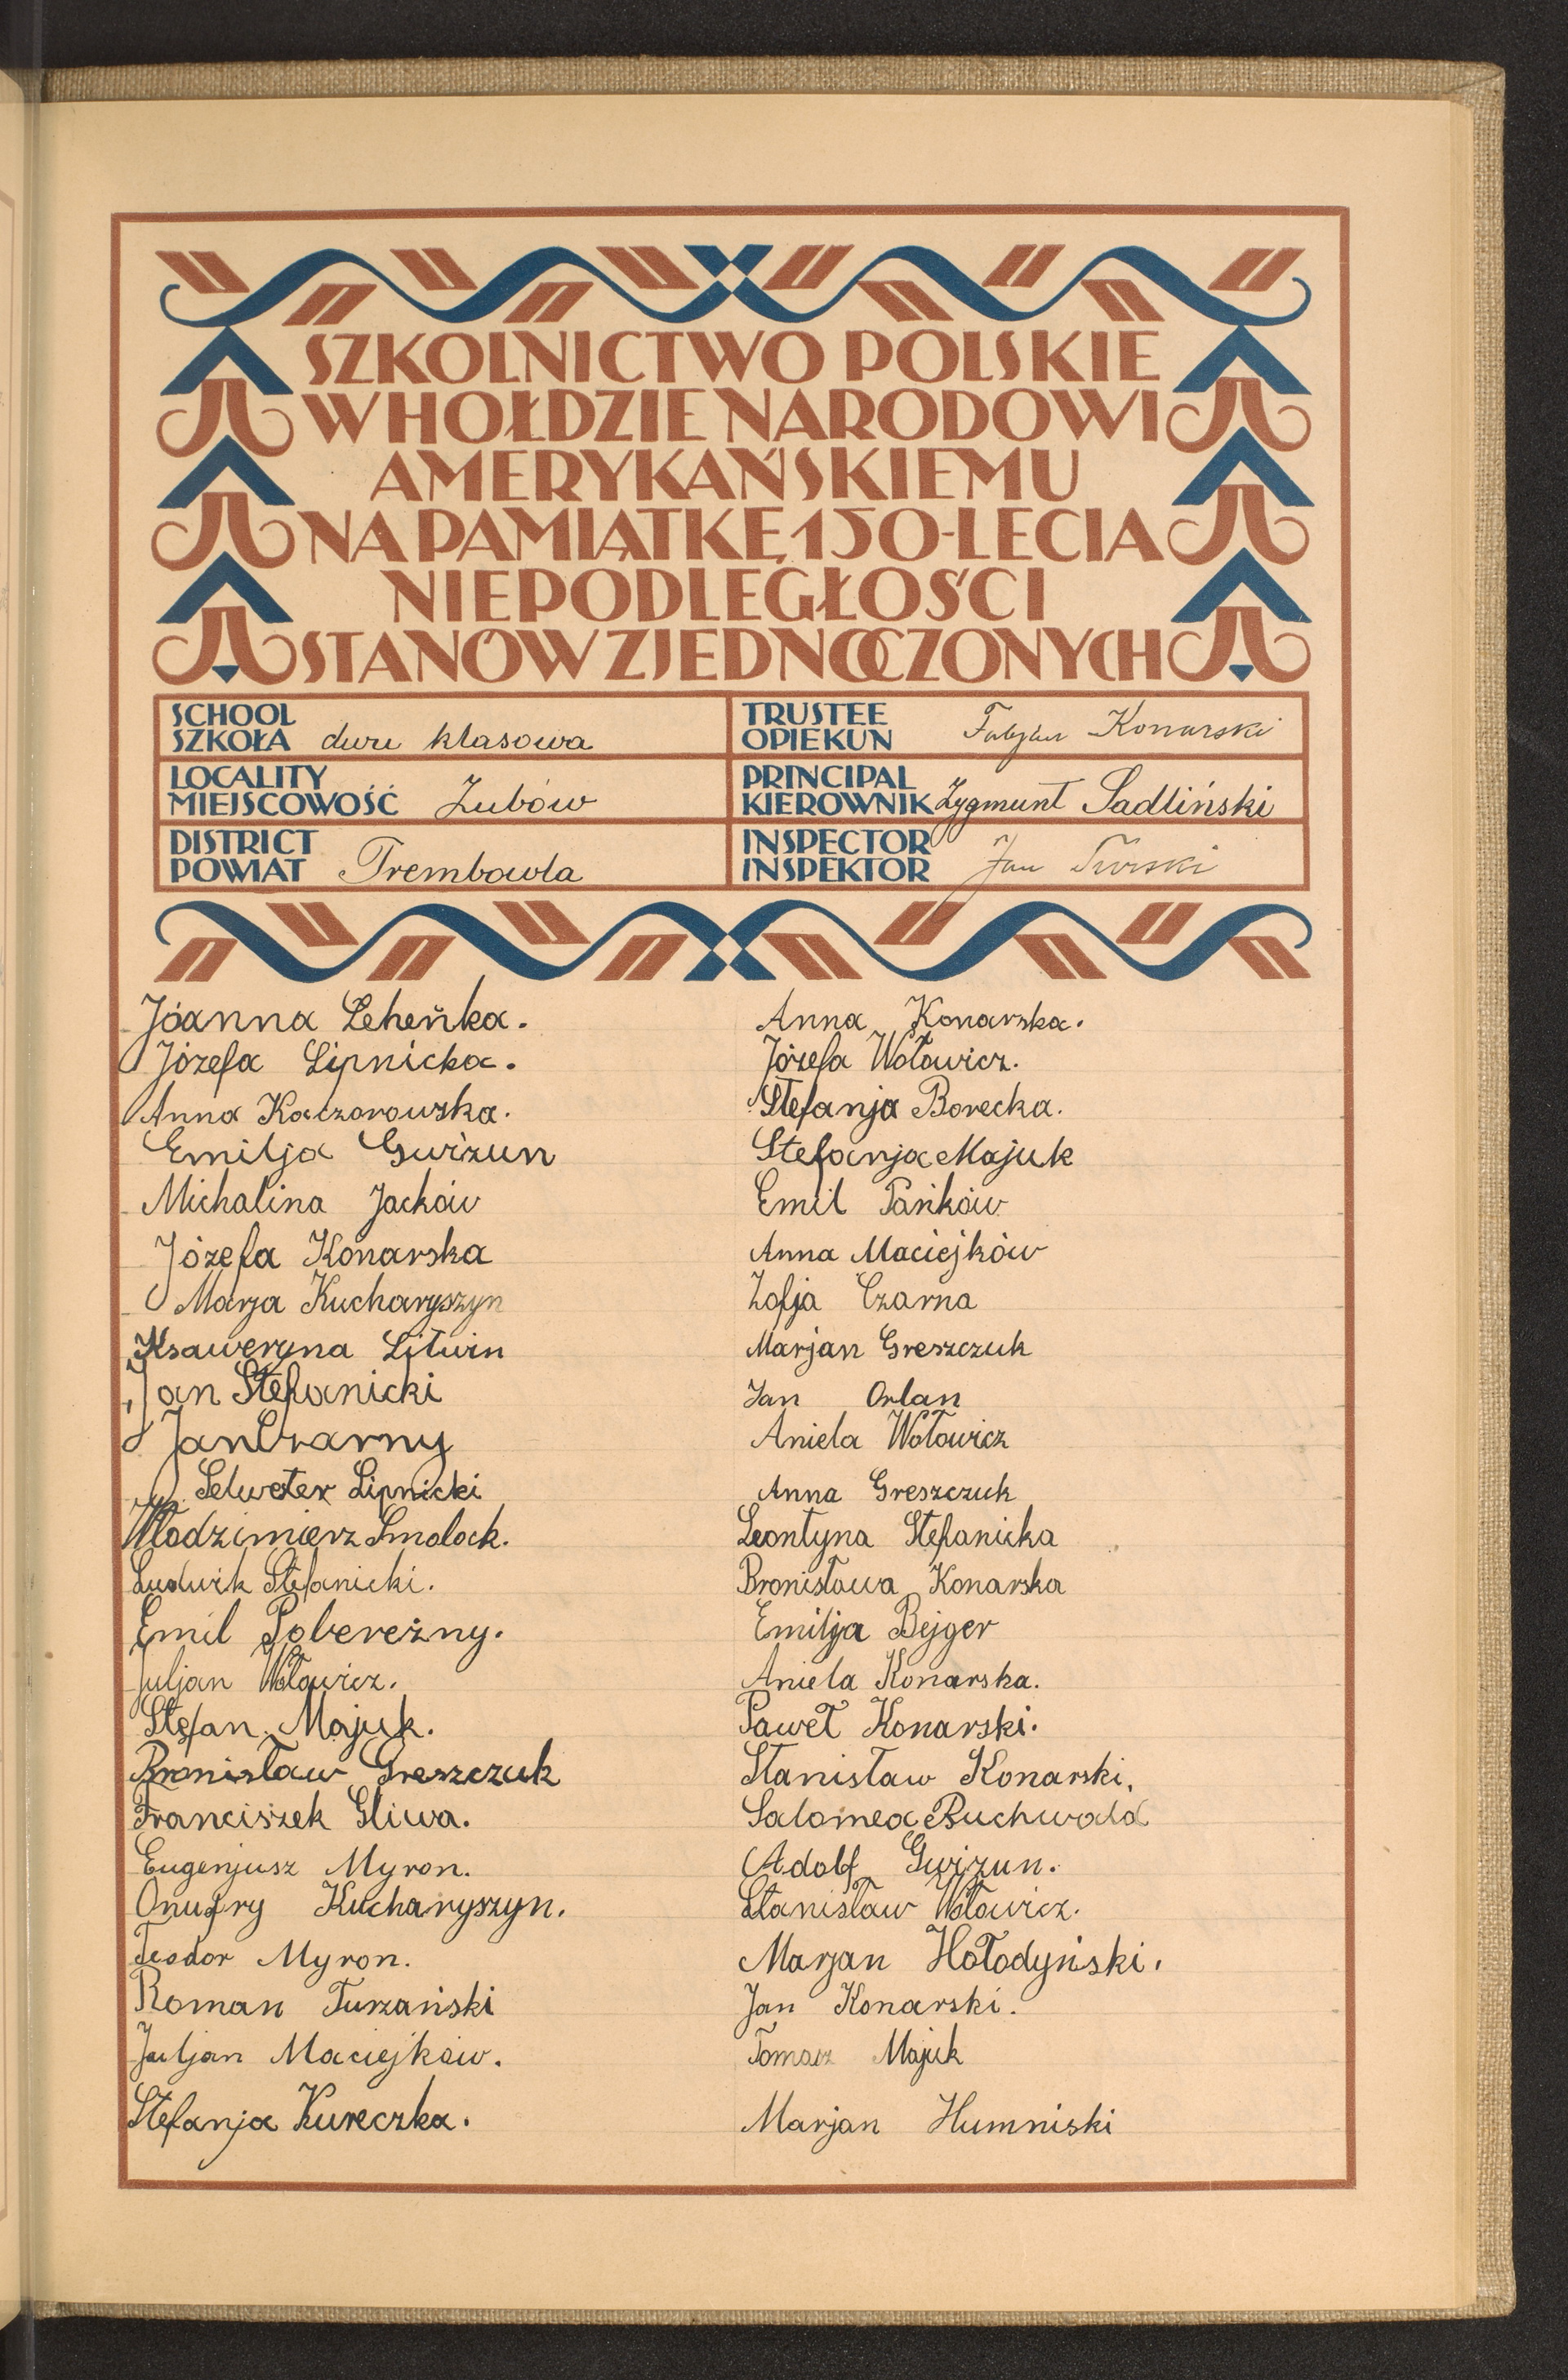 SZKOLNICTWO POLSKIE
W HOŁDZIE NARODOWI
AMERYKAŃSKIEMU
NA PAMIĄTKĘ 150-LECIA
NIEPODLEGŁOŚCI
STANÓW ZJEDNOCZONYCH
SCHOOL
SZKOŁA dwu klasowa
TRUSTEE
OPIEKUN Konarski
LOCALITY
MIEJSCOWOŚĆ Zubów
PRINCIPAL
KIEROWNIK Zygmunt Sadliński
DISTRICT
POWIAT Trembowla
INSPECTOR
INSPEKTOR Jan
Jóanna Leheńka.
Józefa Lipnicka.
Anna Kaczorowska.
Emilja Gwizun
Michalina Jackow
Józefa Konarska
Marja Kucharyszyn
Ksaweryna Litwin
Jan Stefanicki
Jan Czarny
Selwester Lipnicki
Włodzimierz Smolack.
Ludwik Stefanicki.
Emil Pobereżny.
Juljan Wołowicz.
Stefan Majuk.
Bronisław Greszczuk
Franciszek Gliwa.
Eugenjusz Myron.
Onufry Kucharyszyn.
Teodor Myron.
Roman Turzański
Juljan Maciejków.
Stefanja Kureczka.
Anna Konarska.
Józefa Wołowicz.
Stefanja Borecka.
Stefanja Majuk
Emil Pańków
Anna Maciejków
Zofja Czarna
Marjan Greszczuk
Jan Orlan
Aniela Wołowicz
Anna Greszczuk
Leontyna Stefanicka
Bronisława Konarska
Emilja Bejger
Aniela Konarska.
Paweł Konarski.
Stanisław Konarski,
Salomea Buchwald
Adolf Gwizun.
Stanisław Wołowicz.
Marjan Hołodyński.
Jan Konarski.
Tomasz Majuk
Marjan Humniski